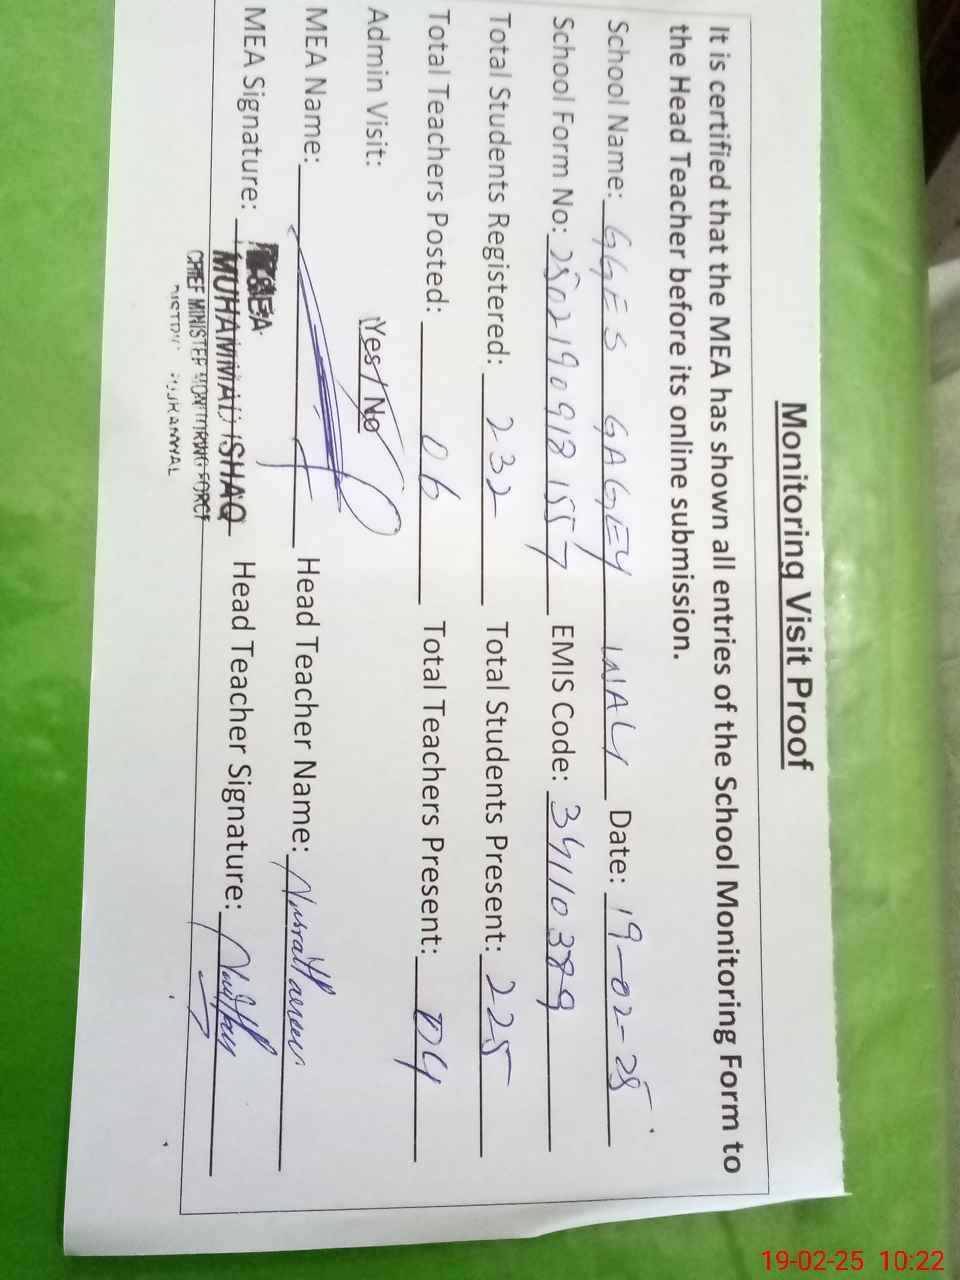 Monitoring Visit Proof
It is certified that the MEA has shown all entries of the School Monitoring Form to
the Head Teacher before its online submission.
School Name: GGES GAGEY WALI Date: 19-02-25
School Form No: EMIS Code: 34110389
Total Students Registered: 232 Total Students Present: 225
Total Teachers Posted: 06 Total Teachers Present: 04
Admin Visit: Yes / No
MEA Name: Head Teacher Name: Nusrat
MEA Signature: Head Teacher Signature:
MEA
MUHAMMAD ISHAQ
CHIEF MINISTER MONITORING FORCE
19-02-25 10:22